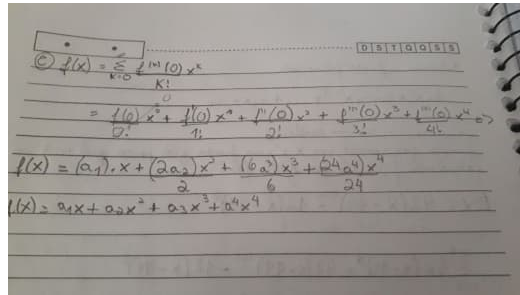 D S T Q Q S S
C) f(x) = Σ k=0 f⁽ᵏ⁾(0) xᵏ / K!
= f(0) x⁰ / 0! + f'(0) x¹ / 1! + f''(0) x² / 2! + f'''(0) x³ / 3! + f''''(0) x⁴ / 4! =>
f(x) = (a₁).x + (2a₂)x² / 2 + (6a³)x³ / 6 + (24a⁴)x⁴ / 24
f(x) = a₁x + a₂x² + a₃x³ + a⁴x⁴